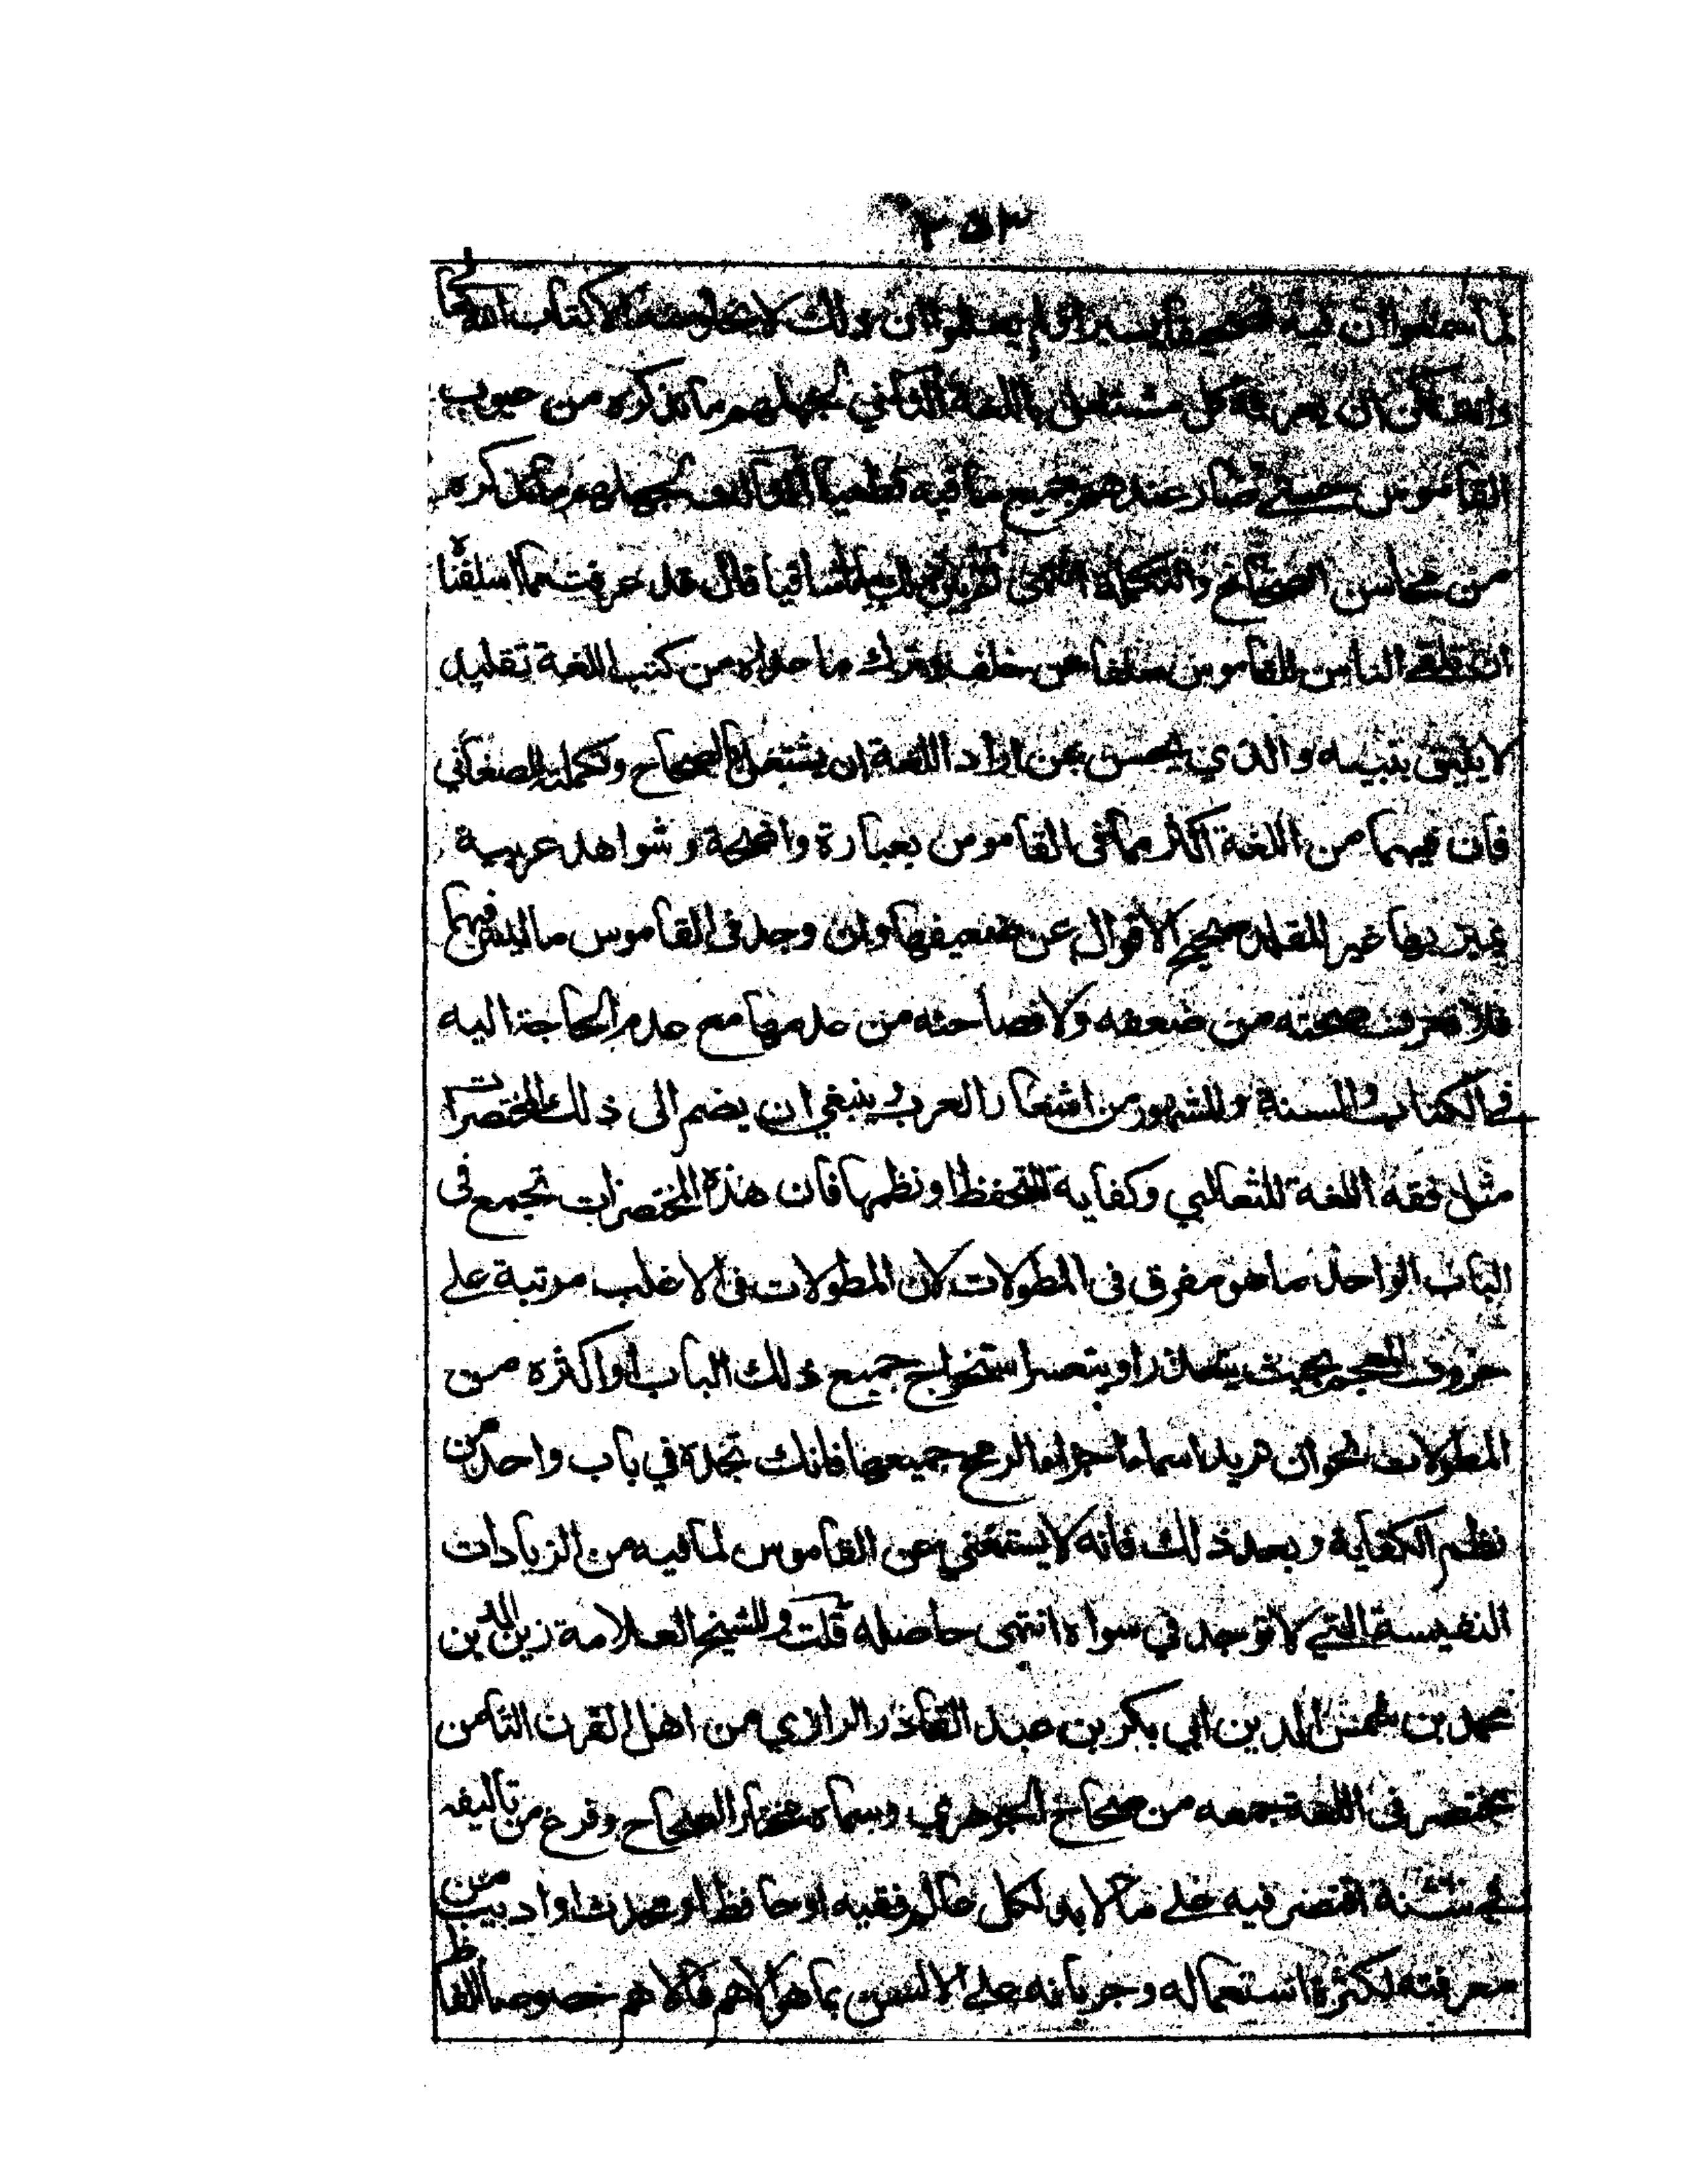 ٣٥٣
لما سمعوا ان فيه تصحيفا يسيرا ولم يعلموا ان ذلك لا يخلو منه الا كتاب الله
القاموس حتى صار عندهم جميع ما فيه قطعيا الثالث لجهلهم ما نذكره
من محاسن الصحاح والتكملة انتهى قال قد عرفت مما اسلفناه
ان تلقي الناس للقاموس سلفا عن خلف وترك ما عداه من كتب اللغة تقليد
لا يليق بنبيه والذي يحسن بمن اراد اللغة ان يشتغل بالصحاح وتكملته للصغاني
فان فيهما من اللغة اكثر مما في القاموس بعبارة واضحة وشواهد عربية
يميز بها غير المقلد صحيح الاقوال عن ضعيفها وان وجد في القاموس ما ليس فيهما
فلا تعرف صحته من ضعفه ولا فصاحته من عدمها مع عدم الحاجة اليه
في الكتاب والسنة والمشهور من اشعار العرب وينبغي ان يضم الى ذلك المختصرات
مثل فقه اللغة للثعالبي وكفاية المتحفظ او نظمها فان هذه المختصرات تجمع في
الباب الواحد ما هو مفرق في المطولات لان المطولات في الاغلب مرتبة على
حروف المعجم بحيث يتعذر او يتعسر استخراج جميع ذلك الباب او اكثره من
المطولات نحو ان تريد اسماء اجزاء الرمح جميعها فانك تجده في باب واحد من
نظم الكفاية وبعد ذلك فانه لا يستغني عن القاموس لما فيه من الزيادات
النفيسة التي لا توجد في سواه انتهى حاصله قلت وللشيخ العلامة زين الدين
محمد بن شمس الدين ابي بكر بن عبد القادر الرازي من اهل القرن الثامن
مختصر في اللغة جمعه من صحاح الجوهري وسماه مختار الصحاح وفرغ من تاليفه
في سنة اقتصر فيه على ما لا بد لكل عالم فقيه او حافظ او محدث او اديب من
معرفته لكثرة استعماله وجريانه على الالسن مما هو الاهم فالاهم خصوصا الفاظ